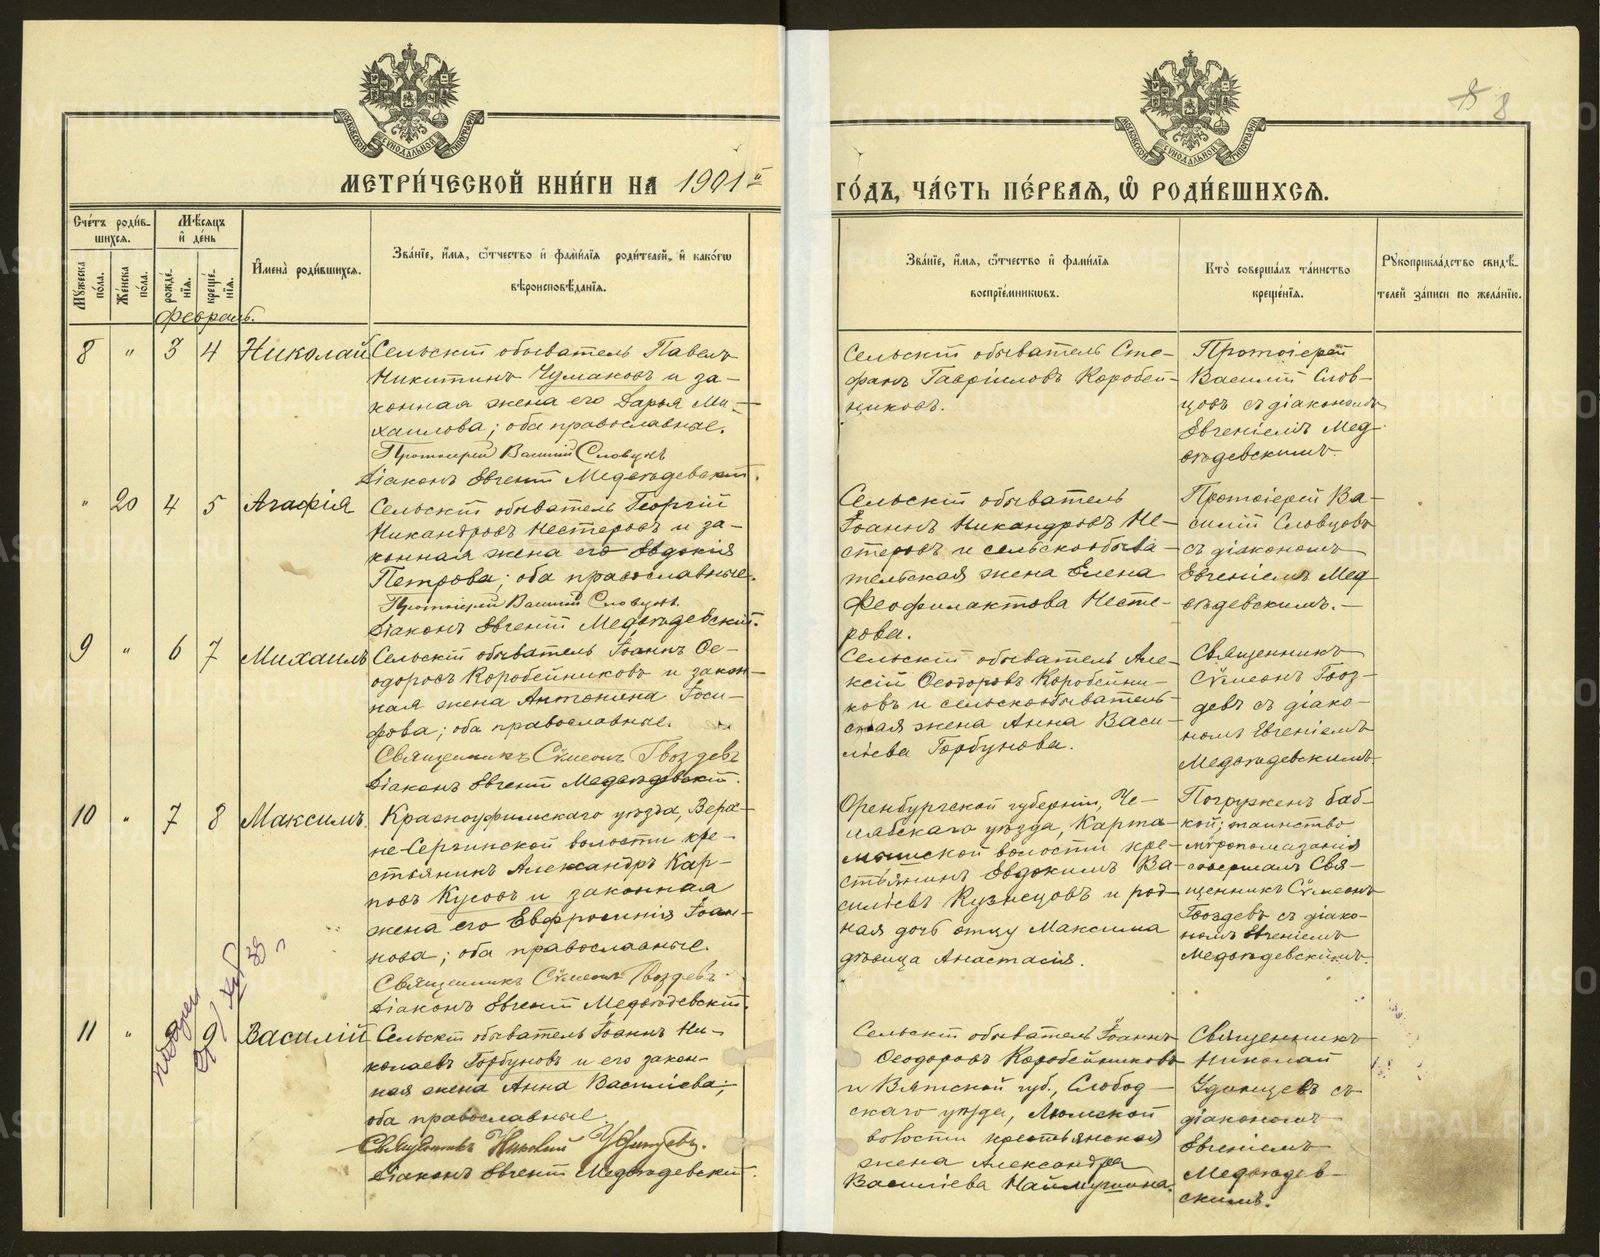 МЕТРИ́ЧЕСКОЙ КНИ́ГИ НА 1901й
ГО́ДЪ, ЧА́СТЬ ПЕ́РВАЯ, Ѿ РОДИ́ВШИХСЯ.
8
Сче́тъ роди́в-
шихся.
Мѣ́сяцъ
и҆ де́нь
Му́жеска по́ла.
Же́нска по́ла.
рожде́нїя.
креще́нїя.
И҆мена̀ роди́вшихся.
Зва́нїе, и҆́мя, ѻ҆́тчество и҆ фами́лїя роди́телей, и҆ како́гѡ
вѣроисповѣ́данїя.
Зва́нїе, и҆́мя, ѻ҆́тчество и҆ фами́лїя
воспрїе́мникѡвъ.
Кто̀ соверша́лъ та́инство
креще́нїя.
Рꙋкоприкла́дство свидѣ́-
телей за́писи по жела́нїю.
Февраль.
8 " 3 4 Николай
Сельскій обыватель Павелъ
Никитинъ Чумаковъ и за-
конная жена его Дарья Ми-
хаилова; оба православные.
Протоіерей Василій Словцовъ
Діаконъ Евгеній Медвѣдевскій.
Сельскій обыватель Сте-
фанъ Гавріиловъ Коробей-
никовъ.
Протоіерей
Василій Слов-
цовъ съ діакономъ
Евгеніемъ Мед-
вѣдевскимъ.
" 20 4 5 Агафія
Сельскій обыватель Георгій
Никандровъ Нестеровъ и за-
конная жена его Евдокія
Петрова; оба православные.
Протоіерей Василій Словцовъ.
Діаконъ Евгеній Медвѣдевскій.
Сельскій обыватель
Іоаннъ Никандровъ Не-
стеровъ и сельскообыва-
тельская жена Елена
Феофилактова Несте-
рова.
Протоіерей Ва-
силій Словцовъ
съ діакономъ
Евгеніемъ Мед-
вѣдевскимъ.
9 " 6 7 Михаилъ
Сельскій обыватель Іоаннъ Ѳе-
одоровъ Коробейниковъ и закон-
ная жена Антонина Іоси-
фова; оба православные.
Священникъ Сѷмеонъ Гвоздевъ
Діаконъ Евгеній Медвѣдевскій.
Сельскій обыватель Але-
ксій Ѳеодоровъ Коробейни-
ковъ и сельскообыватель-
ская жена Анна Васи-
льева Горбунова.
Священникъ
Сѷмеонъ Гвоз-
девъ съ діако-
номъ Евгеніемъ
Медвѣдевскимъ.
10 " 7 8 Максимъ
Красноуфимскаго уѣзда, Верх-
не-Сергинской волости кре-
стьянинъ Александръ Кар-
повъ Кусовъ и законная
жена его Евфросинія Іоан-
нова; оба православные.
Священникъ Сѷмеонъ Гвоздевъ.
Діаконъ Евгеній Медвѣдевскій.
Оренбургской губерніи, Че-
лябскаго уѣзда, Карта-
ской волости кре-
стьянинъ Евдокимъ Ва-
сильевъ Кузнецовъ и род-
ная дочь отцу Максима
дѣвица Анастасія.
Погруженъ баб-
кой; таинство
мѵропомазанія
совершалъ Свя-
щенникъ Сѷмеонъ
Гвоздевъ съ діако-
номъ Евгеніемъ
Медвѣдевскимъ.
11 " 9 9 Василій
Сельскій обыватель Іоаннъ Ни-
колаевъ Горбуновъ и его закон-
ная жена Анна Василіева;
оба православные
Священникъ Николай Удинцевъ.
Діаконъ Евгеній Медвѣдевскій.
Сельскій обыватель Іоаннъ
Ѳеодоровъ Коробейниковъ
и Вятской губ., Слобод-
скаго уѣзда, Люмской
волости крестьянская
жена Александра
Василіева Наймушина.
Священникъ
Николай
Удинцевъ съ
діакономъ
Евгеніемъ
Медвѣдев-
скимъ.